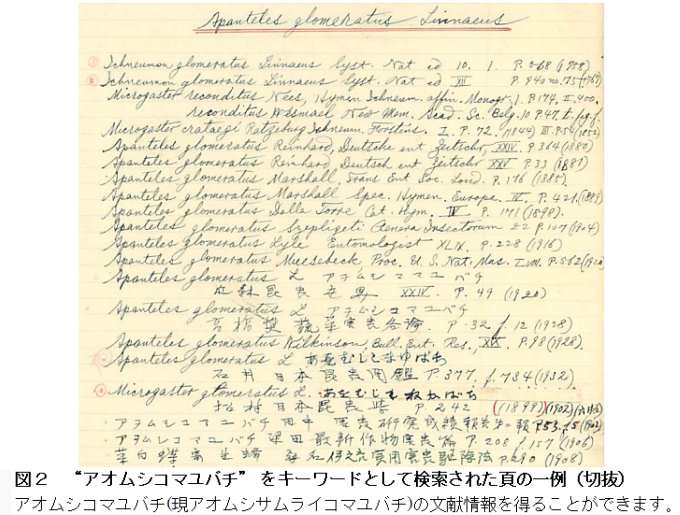 Apanteles glomeratus Linnaeus
Ichneumon glomeratus Linnaeus Syst. Nat ed 10. 1. P. 568 (1758)
Ichneumon glomeratus Linnaeus Syst. Nat ed XII P. 940 no. 75 (1767)
Microgaster reconditus Nees, Hymen Ichneum. affin. Monogr. 1. P. 174, II. 400.
reconditus Wesmael Nov Mem. Acad. Sc. Belg. 10 P. 47.
Microgaster crataegi Ratzeburg Ichneum. Forstins. I. P. 72. (1844) III. P. 54 (1852)
Apanteles glomeratus Reinhard, Deutsche ent Zeitschr XXIV. P. 364 (1880)
Apanteles glomeratus Reinhard, Deutsch ent Zeitschr XXV P. 33 (1881)
Apanteles glomeratus Marshall, Trans Ent Soc. Lond. P. 176 (1885).
Apanteles glomeratus Marshall Spec. Hymen. Europe. IV. P. 421. (1889)
Apanteles glomeratus Della Torre Cat. Hym. IV P. 171 (1898).
Apanteles glomeratus Szepligeti Genera Insectorum 22 P. 107 (1904)
Apanteles glomeratus Lyle Entomologist XLIX. P. 228 (1916)
Apanteles glomeratus Muesebeck Proc. U. S. Nat. Mus. P. 562 (1920
Apanteles glomeratus L アヲムシコマユバチ
XXIV. P. 49 (1920)
Apanteles glomeratus L アヲムシコマユバチ
高橋奨 蔬菜害虫各論 P. 32 f. 12 (1928)
Apanteles glomeratus Wilkinson, Bull. Ent. Res., XIX P. 98 (1928).
Apanteles glomeratus L. あをむしこまゆばち
石井 日本昆虫図鑑 P. 377. f. 734 (1932)
Microgaster glomeratus L. あをむしこまゆばち
松村 日本昆虫学 P. 242 (1899)(1902)
アヲムシコマユバチ 田中 P. 53. (190
アヲムシコマユバチ 梁田 最新作物害虫篇 P. 208 f 157 (1906)
害虫駆除法 P. 290 (1908)
図2 “アオムシコマユバチ” をキーワードとして検索された頁の一例（切抜）
アオムシコマユバチ(現アオムシサムライコマユバチ)の文献情報を得ることができます。